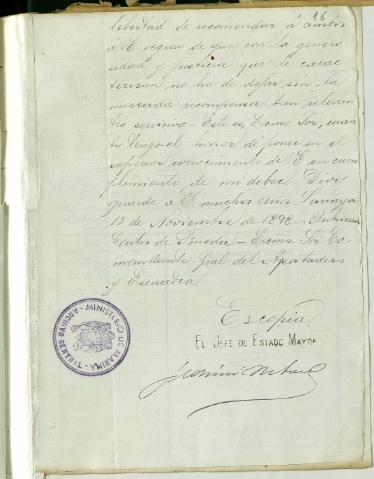 16
libertad de recomendar á ambos
á V.E. seguro de que con la genero
sidad y justicia que le carac
terizan no ha de dejar sin la
merecida recompensa tan relevan
tes servicios. Esto es, Excmo Sor, cuan
to tengo el honor de poner en el
superior conocimiento de V.E en cum
plimiento de mi deber. Dios
guarde á V.E. muchos años.
13 de Noviembre de 1898 - Rubricado
Carlos de Pineda - Excmo. Sor. Co-
mandante Gral del Apostadero
y Escuadra.
Es copia
EL JEFE DE ESTADO MAYOR
MINISTERIO DE MARINA - ARCHIVO CENTRAL